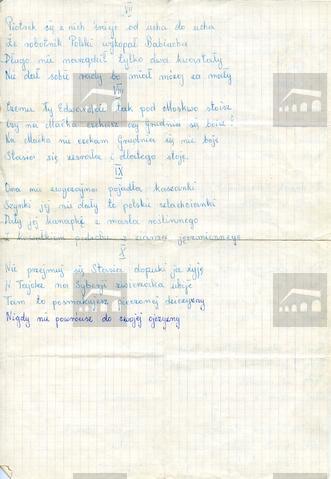 VII
Piotrek się z nich śmieje od ucha do ucha
Że robotnik Polski wykopał Babiucha
Długo nie narządził tylko dwa kwartały
Nie dał sobie rady bo miał mózg za mały
VIII
Czemu ty Edwardzie tak pod Moskwo stoisz
Czy na Maćka czekasz czy Grudnia się boisz?
Na Maćka nie czekam Grudnia się nie boje
Stasio się zesrało i dlatego stoje
IX
Ona ma zwyczajna pojadła kaszanki
Szynki jej nie dały te polski szlachcianki
Dały jej kanapkę z masła roślinnego
z kawałkiem z ziarna jęczmiennego
X
Nie przejmuj się Stasiu dopuki ja żyję
W Tajdze na Syberji zwierzaka ubije
Tam to posmakujesz pieczonej dziczyzny
Nigdy nie powrócisz do swojej ojczyzny